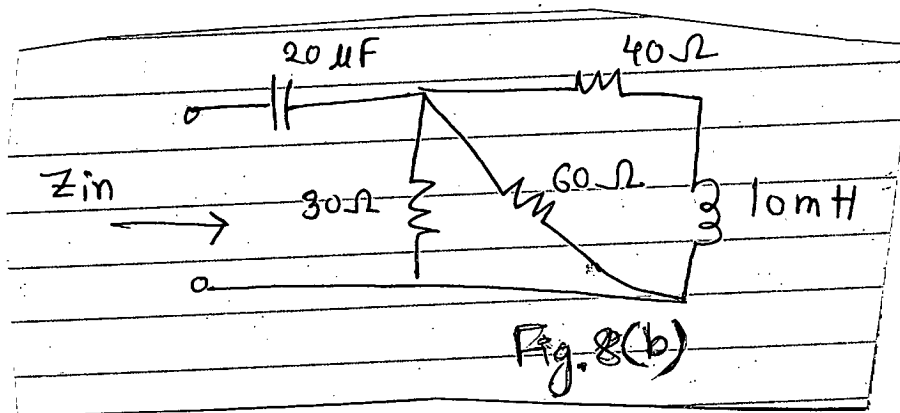 20 μF
40Ω
Zin
30Ω
60Ω
10mH
Fig. 8(b)